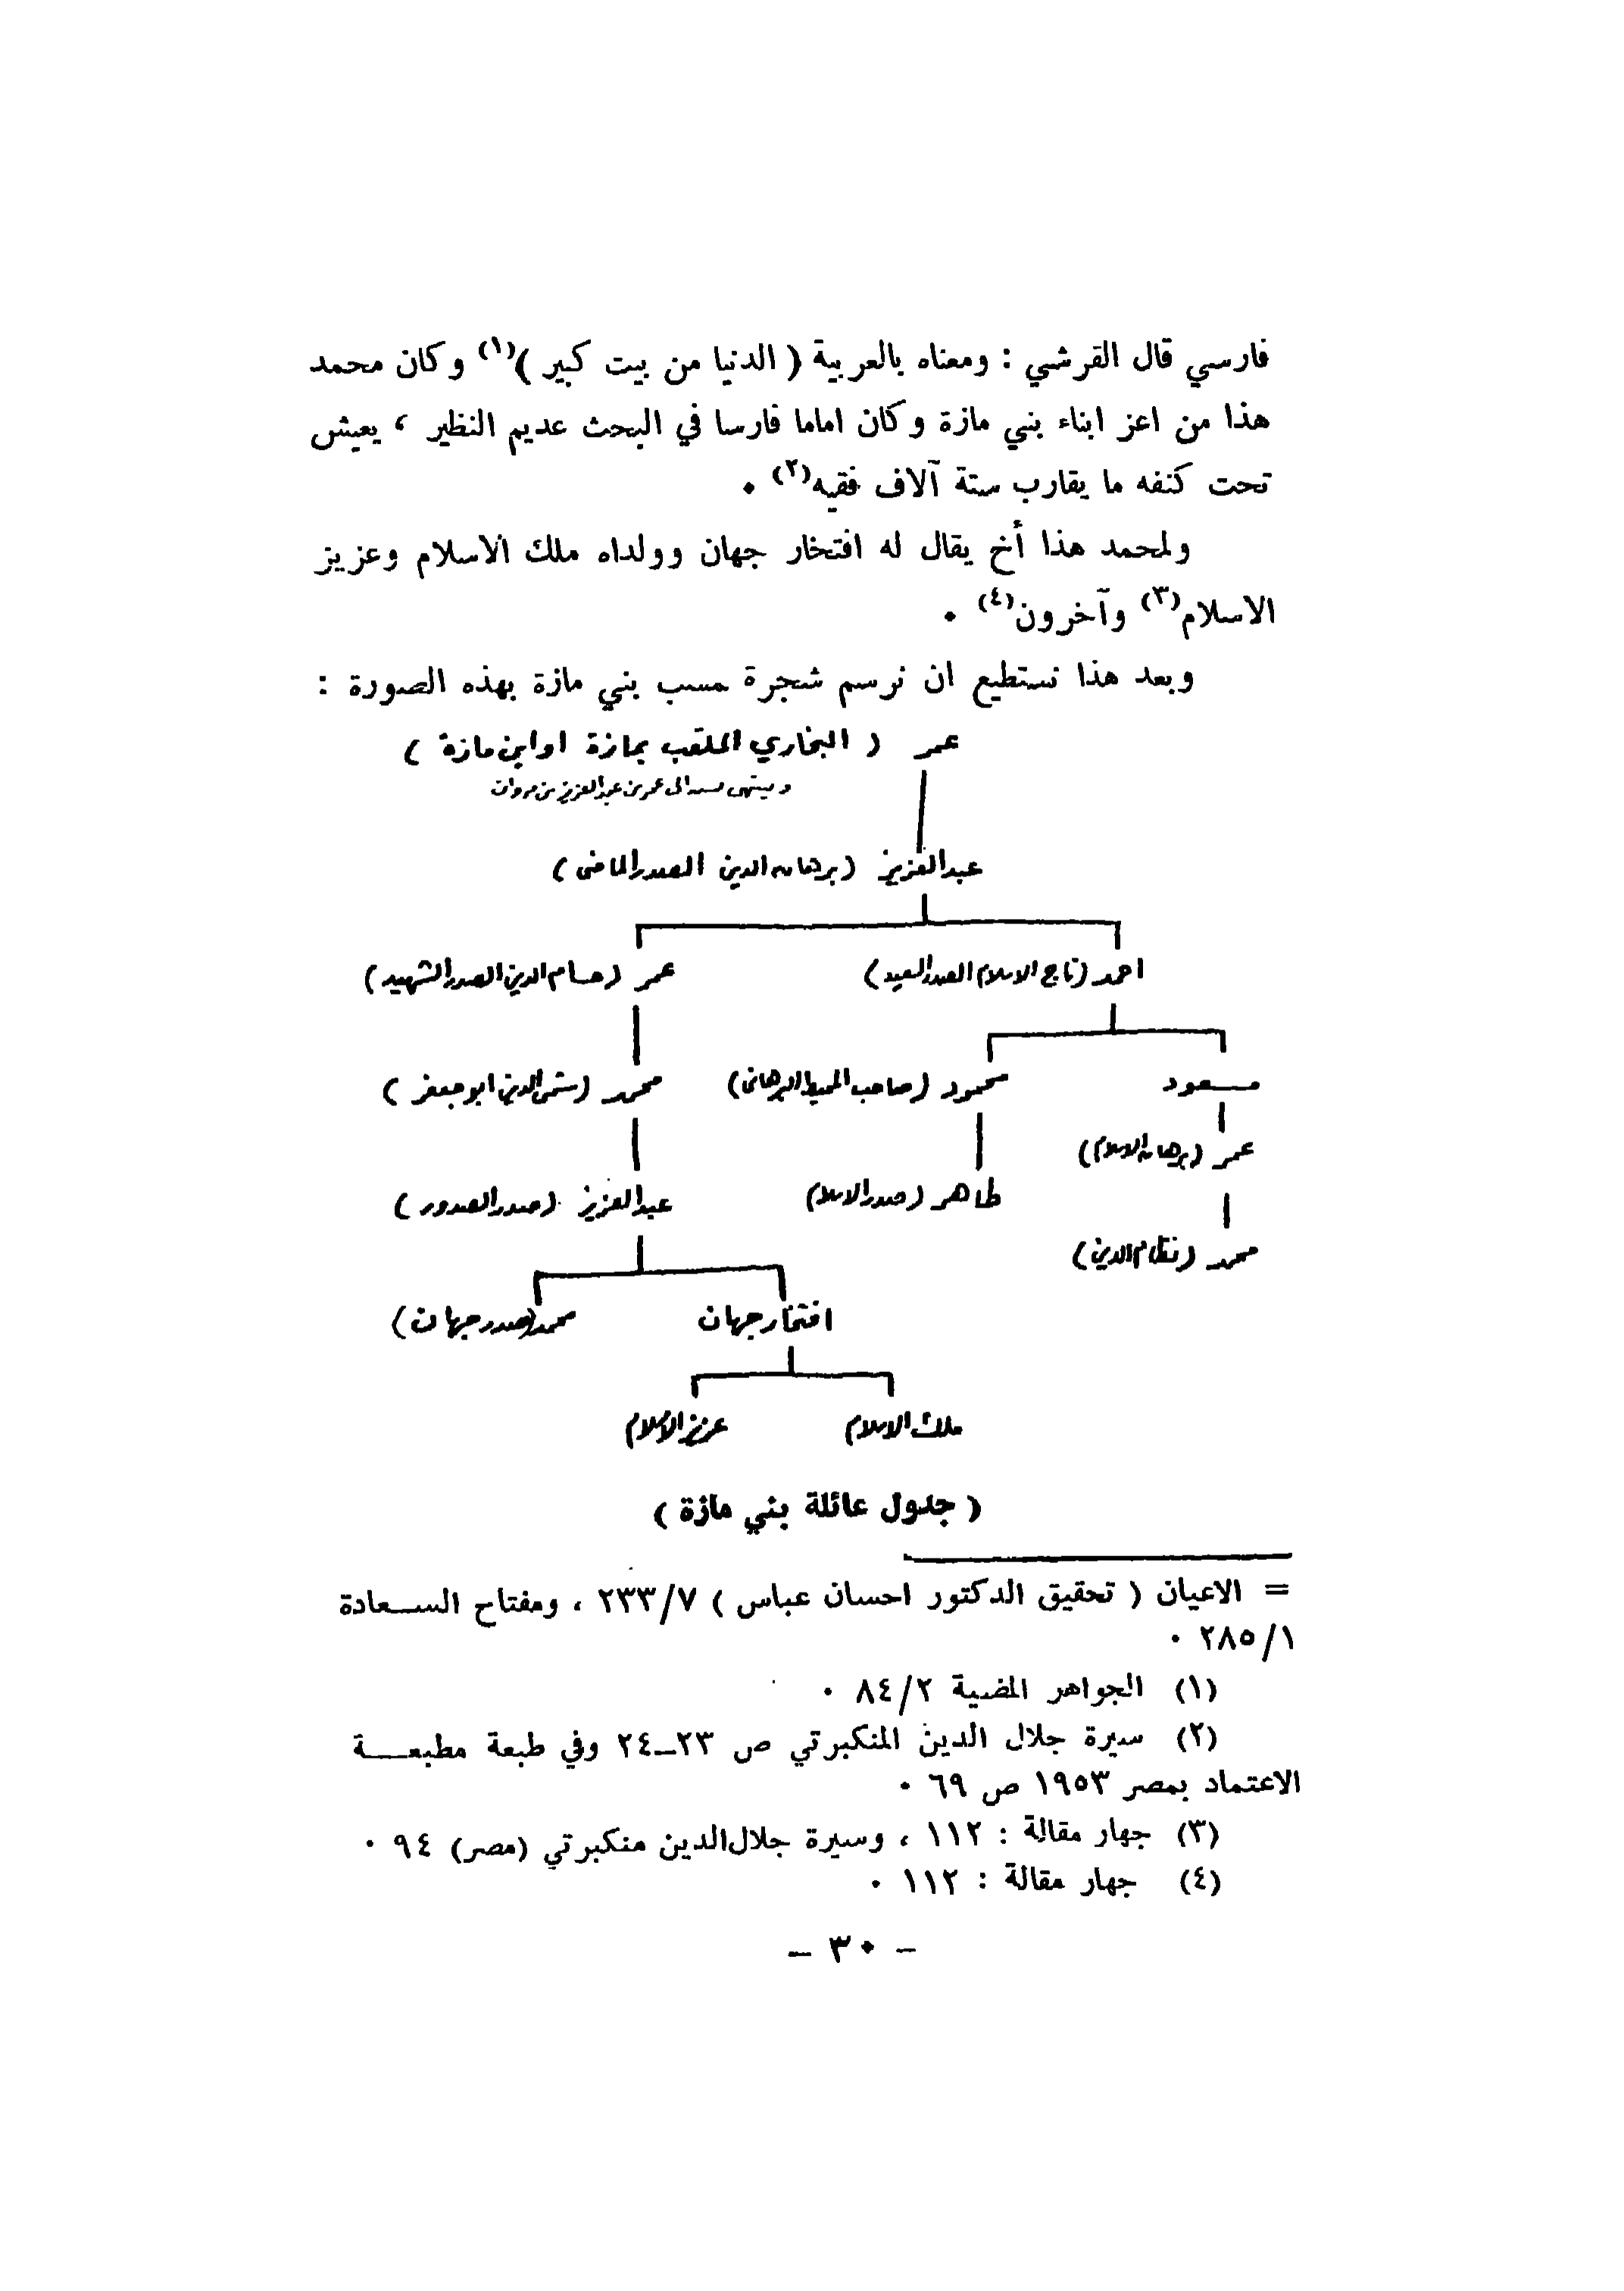 فارسي قال القرشي : ومعناه بالعربية ( الدنيا من بيت كبير )(١) وكان محمد
هذا من اعز ابناء بني مازة وكان اماما فارسا في البحث عديم النظير ، يعيش
تحت كنفه ما يقارب ستة آلاف فقيه(٢) ٠
ولمحمد هذا أخ يقال له افتخار جهان وولداه ملك الاسلام وعزيز
الاسلام(٣) وآخرون(٤) ٠
وبعد هذا نستطيع ان نرسم شجرة نسب بني مازة بهذه الصورة :
عمر ( البخاري الملقب بمازة او ابن مازة )
وينتهي نسبه الى عمر بن عبدالعزيز بن مروان
عبدالعزيز (برهان الدين الصدر الماضى )
احمد (تاج الاسلام الصدر السعيد) عمر (حسام الدين الصدر الشهيد)
مسعود محمود (صاحب المحيط البرهانى) محمد (شمس الدين ابو جعفر )
عمر (برهان الاسلام)
طاهر (صدر الاسلام) عبدالعزيز (صدر الصدور )
محمد (نظام الدين)
افتخار جهان محمد (صدر جهان)
ملك الاسلام عزيز الاسلام
( جدول عائلة بني مازة )
= الاعيان ( تحقيق الدكتور احسان عباس ) ٢٣٣/٧ ، ومفتاح الســعادة
٢٨٥/١ ٠
(١) الجواهر المضية ٨٤/٢ ٠
(٢) سيرة جلال الدين المنكبرتي ص ٢٣ـ٢٤ وفي طبعة مطبعـــة
الاعتماد بمصر ١٩٥٣ ص ٦٩ ٠
(٣) جهار مقالة : ١١٢ ، وسيرة جلال‌الدين منكبرتي (مصر) ٩٤ ٠
(٤) جهار مقالة : ١١٢ ٠
– ٣٠ –